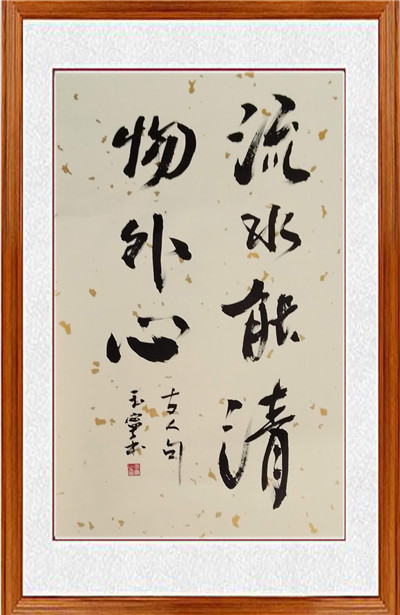 流水能清
物外心
古人句
玉寧书